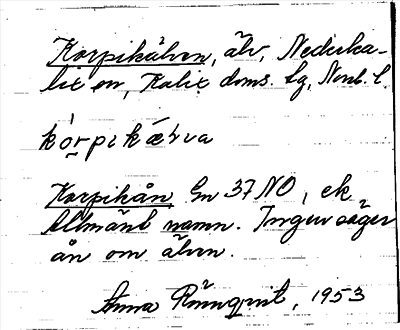 Korpikälven, älv, Nederka-
lix sn, Kalix doms. lg, Norrb. l.
kòrpikæḷva
Korpikån Gm 37 NO, ek
Allmänt namn. Ingen säger
ån om älven.
Anna Rönnqvist, 1953